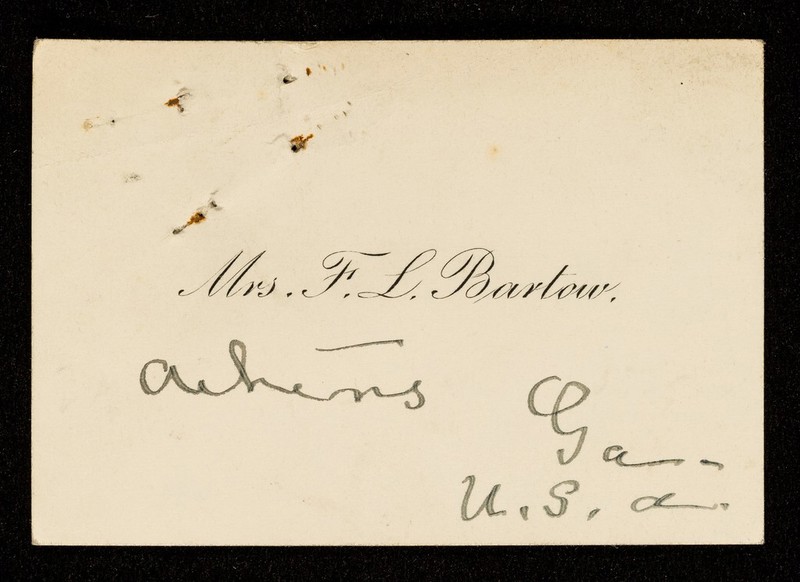 Mrs. F. L. Bartow.
Athens
Ga.
U.S.a.